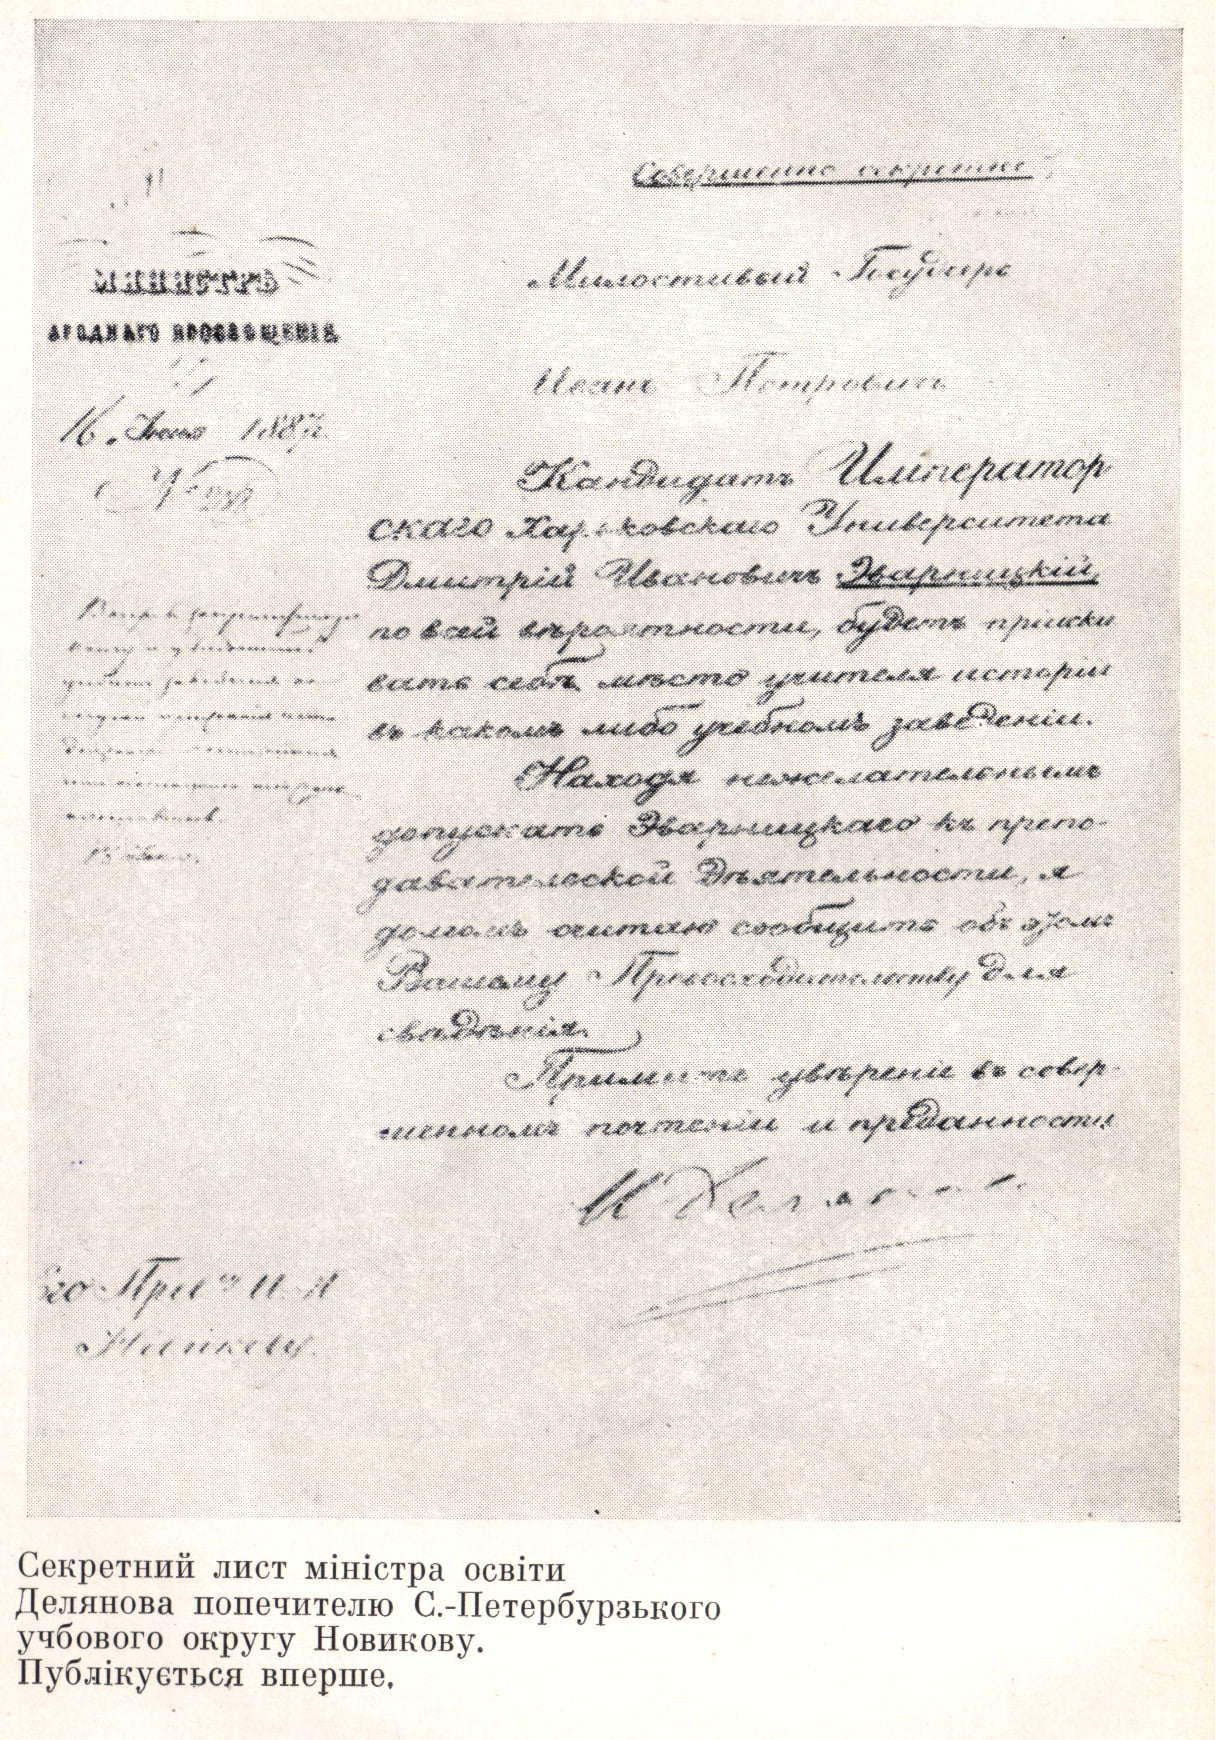 Совершенно секретно
МИНИСТРЪ
АРОДНАГО ПРОСВѢЩЕНІЯ
16. Июня 1887г.
Милостивый Государь
Иванъ Петровичъ
Кандидатъ Император
скаго Харьковскаго Университета
Дмитрій Ивановичъ Эварницкій,
по всей вѣроятности, будетъ пріиски
вать себѣ мѣсто учителя исторіи
въ какомъ либо учебномъ заведеніи.
Находя нежелательнымъ
допускать Эварницкаго къ препо-
давательской дѣятельности, я
долгомъ считаю сообщить объ этомъ
Вашему Превосходительству для
свѣдѣнія.
Примите увѣреніе въ совер-
шенномъ почтеніи и преданности
И Деляновъ
Его Прев И. П
Новикову.
Секретний лист міністра освіти
Делянова попечителю С.-Петербурзького
учбового округу Новикову.
Публікується вперше.